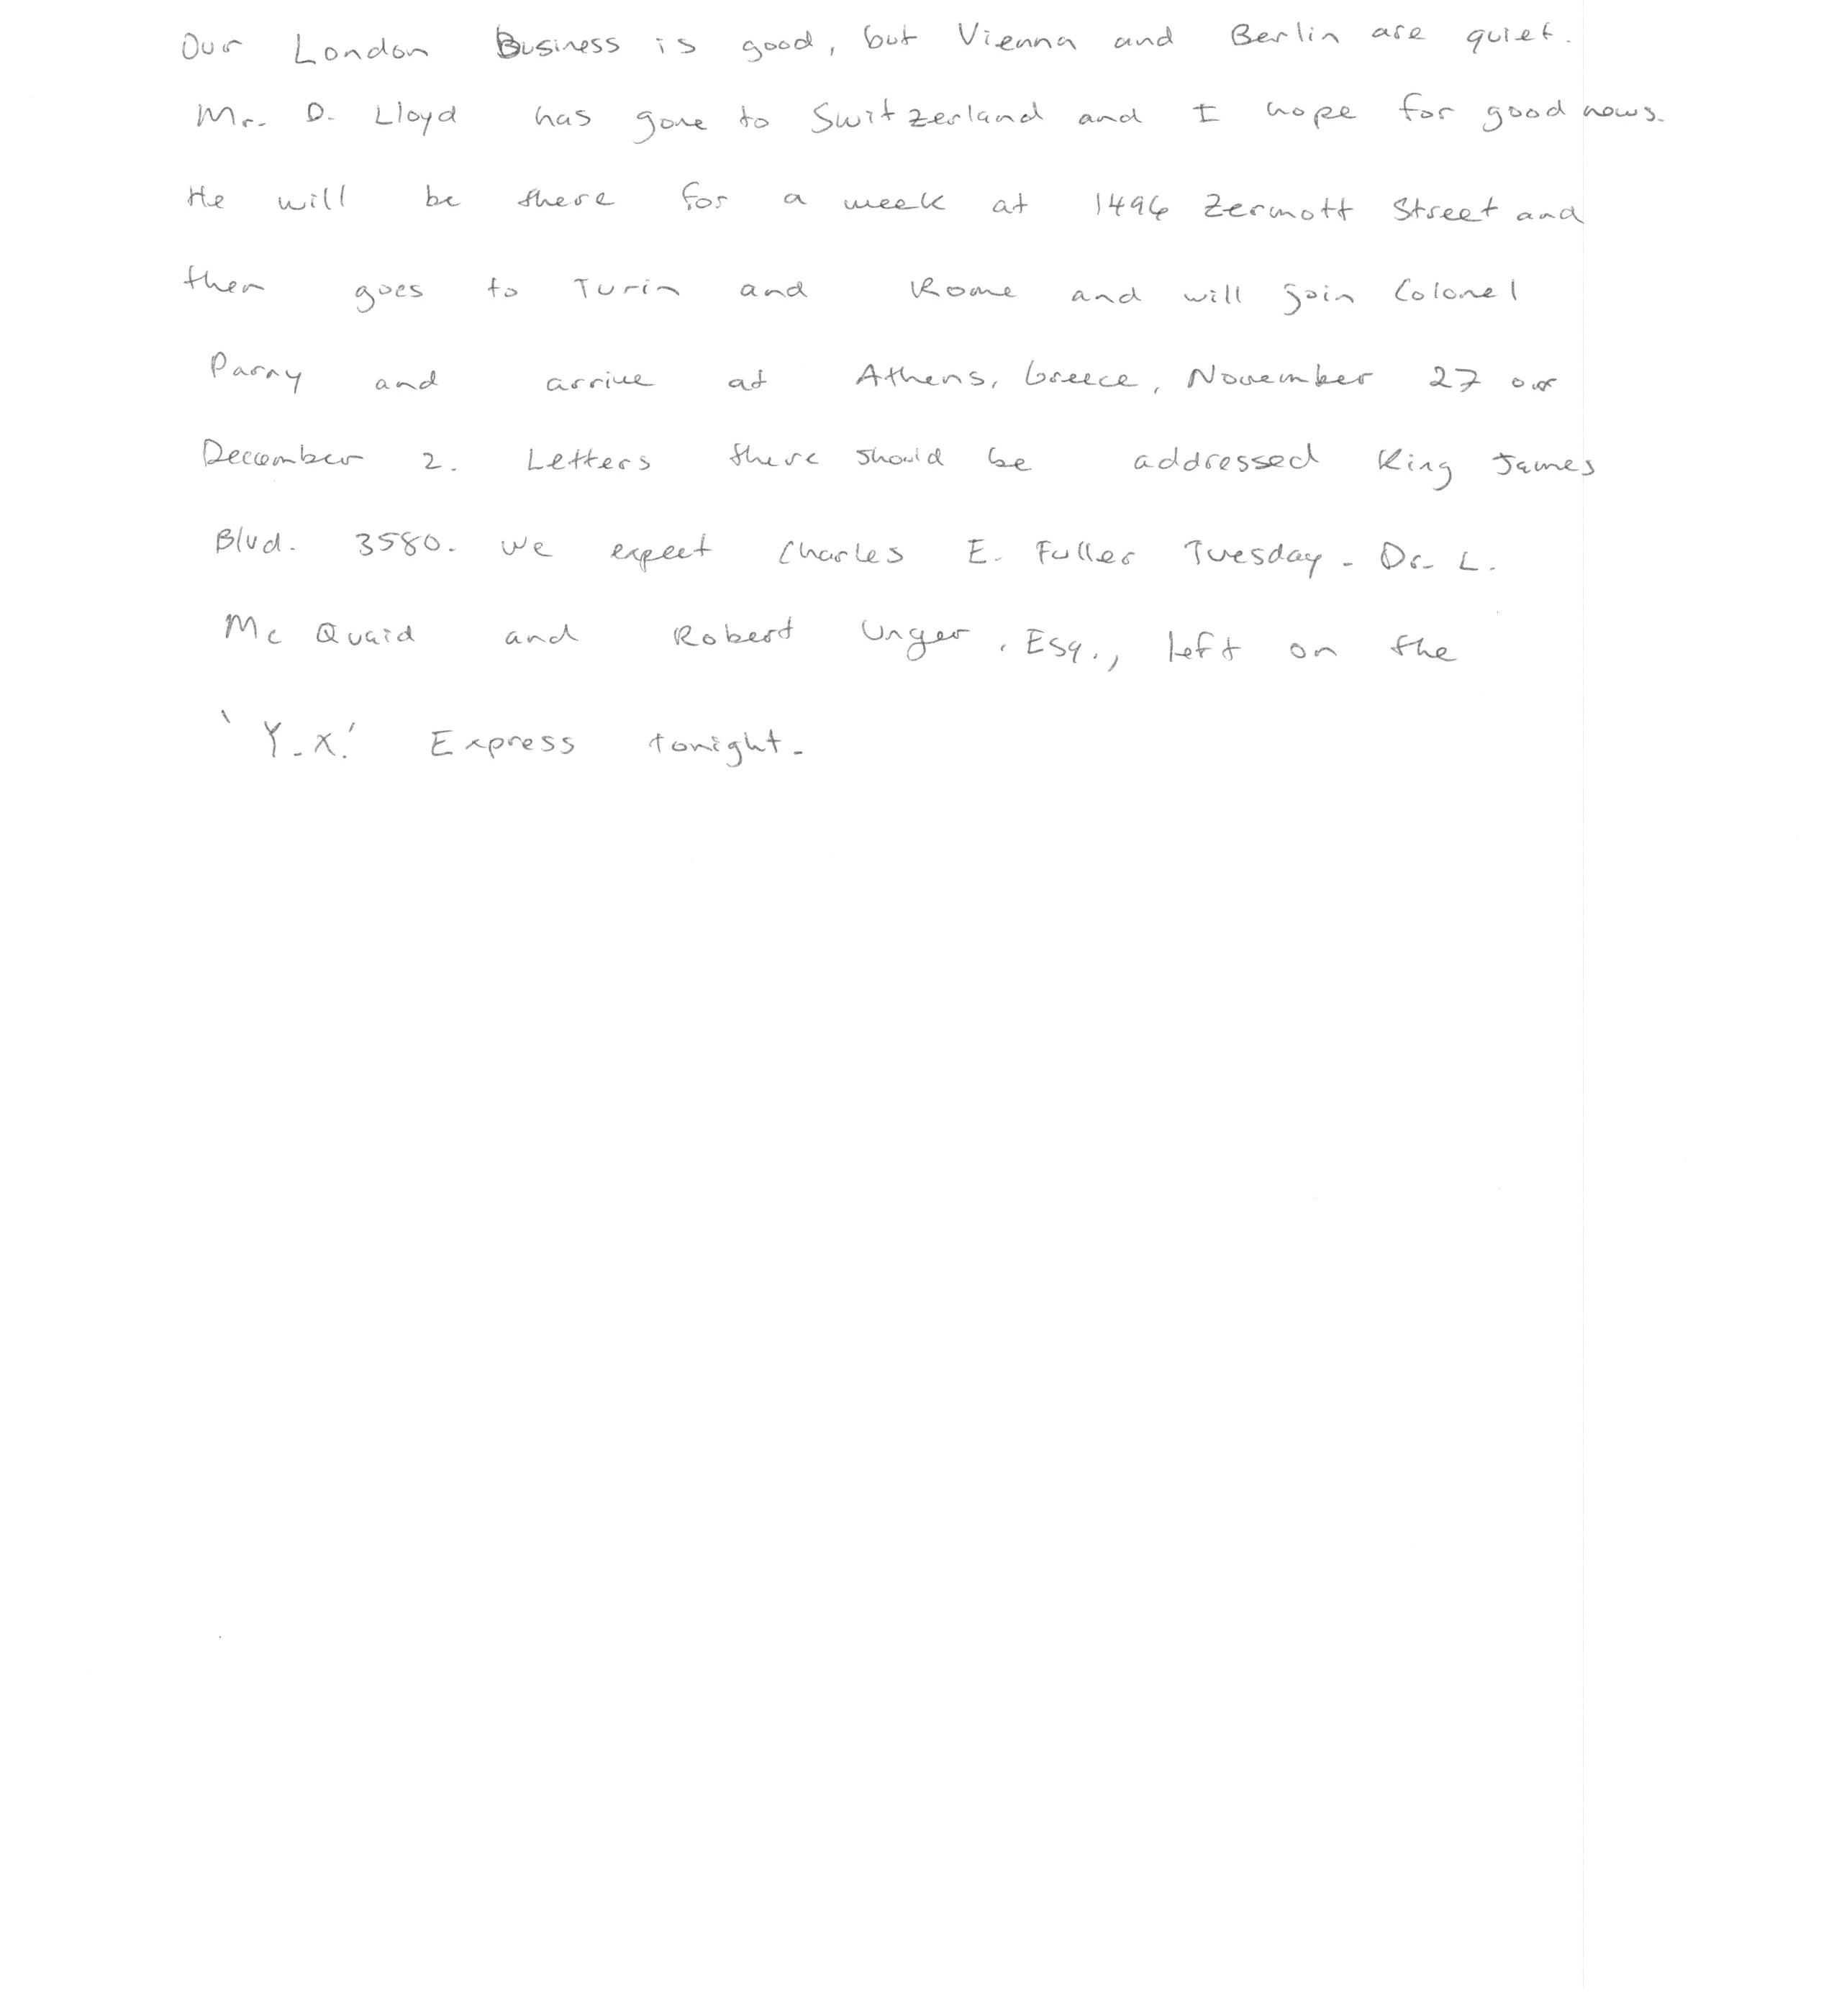 Our London Business is good, but Vienna and Berlin are quiet.
Mr. D. Lloyd has gone to Switzerland and I hope for good news.
He will be there for a week at 1496 Zermott Street and
then goes to Turin and Rome and will join Colonel
Parry and arrive at Athens, Greece, November 27 or
December 2. Letters there should be addressed King James
Blvd. 3580. We expect Charles E. Fuller Tuesday. Dr. L.
McQuaid and Robert Unger, Esq., left on the
'Y.X.' Express tonight.